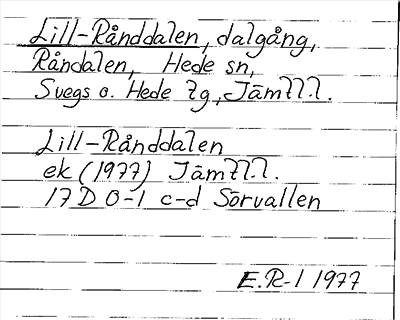 Lill-Rånddalen, dalgång,
Råndalen, Hede sn,
Svegs o. Hede tg, Jämtl.
Lill-Rånddalen
ek (1977) Jämtl.
17 D 0-1 c-d Sörvallen
E.R-l 1977